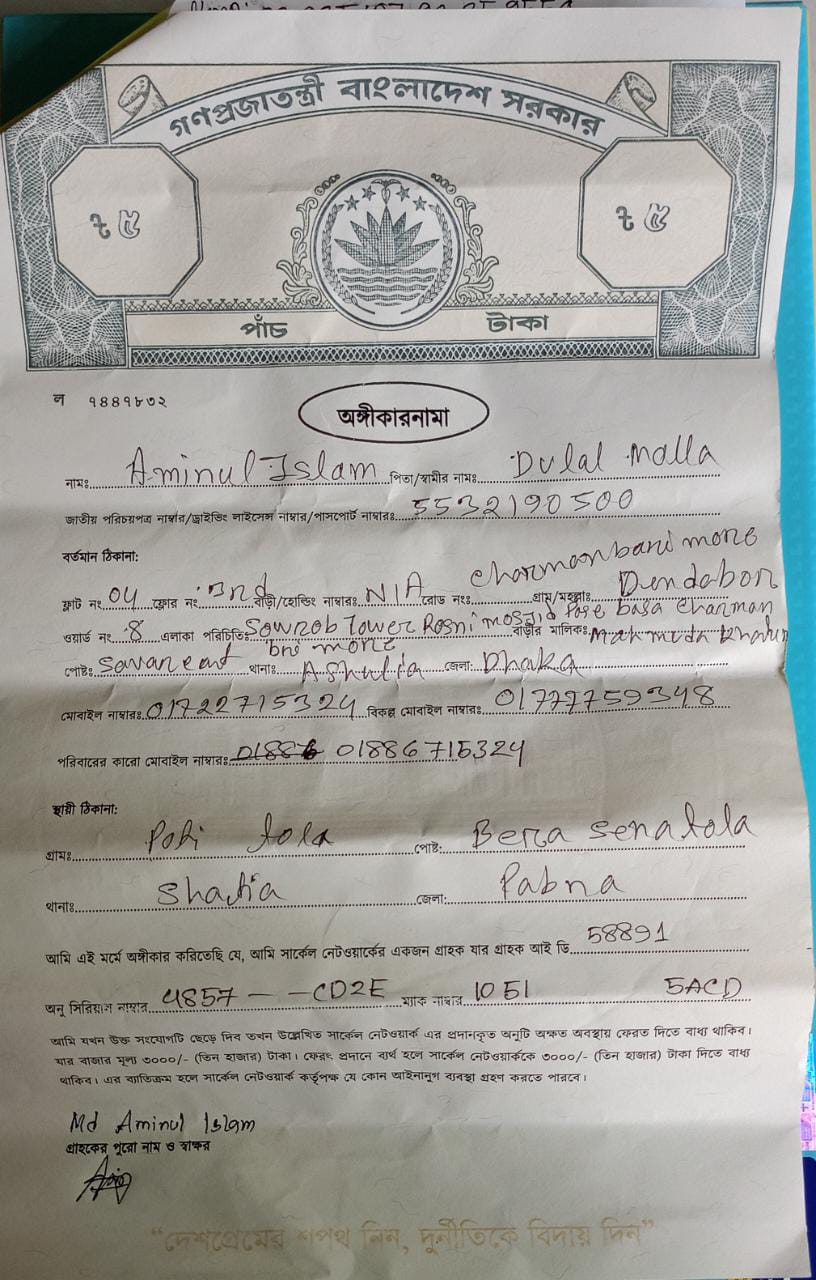 গণপ্রজাতন্ত্রী বাংলাদেশ সরকার
৳ ৫
৳ ৫
পাঁচ টাকা
ল ৭৪৪৭৮৩২
অঙ্গীকারনামা
নামঃ Aminul Islam পিতা/স্বামীর নামঃ Dulal Malla
জাতীয় পরিচয়পত্র নাম্বার/ড্রাইভিং লাইসেন্স নাম্বার/পাসপোর্ট নাম্বারঃ 5532190500
বর্তমান ঠিকানা:
ফ্লাট নং 04 ফ্লোর নং 3nd বাড়ী/হোল্ডিং নাম্বারঃ N/A রোড নংঃ Charmanbari more গ্রাম/মহল্লাঃ Dendabon
ওয়ার্ড নং 8 এলাকা পরিচিতিঃ Sowrob Tower Rosni mosjid Pase basa Charman bri more বাড়ীর মালিকঃ Mahmuda Khatun
পোষ্টঃ Savar থানাঃ Ashulia জেলা: Dhaka
মোবাইল নাম্বারঃ 01722715324 বিকল্প মোবাইল নাম্বারঃ 01777759348
পরিবারের কারো মোবাইল নাম্বারঃ 01886715324
স্থায়ী ঠিকানা:
গ্রামঃ tola পোষ্ট: Bera senatola
থানাঃ Shatia জেলা: Pabna
আমি এই মর্মে অঙ্গীকার করিতেছি যে, আমি সার্কেল নেটওয়ার্কের একজন গ্রাহক যার গ্রাহক আই ডি 58891
অনু সিরিয়াল নাম্বার 4857 - - CD2E ম্যাক নাম্বার 1051 5ACD
আমি যখন উক্ত সংযোগটি ছেড়ে দিব তখন উল্লেখিত সার্কেল নেটওয়ার্ক এর প্রদানকৃত অনুটি অক্ষত অবস্থায় ফেরত দিতে বাধ্য থাকিব।
যার বাজার মূল্য ৩০০০/- (তিন হাজার) টাকা। ফেরৎ প্রদানে ব্যর্থ হলে সার্কেল নেটওয়ার্ককে ৩০০০/- (তিন হাজার) টাকা দিতে বাধ্য
থাকিব। এর ব্যতিক্রম হলে সার্কেল নেটওয়ার্ক কর্তৃপক্ষ যে কোন আইনানুগ ব্যবস্থা গ্রহণ করতে পারবে।
Md Aminul Islam
গ্রাহকের পুরো নাম ও স্বাক্ষর
“দেশপ্রেমের শপথ নিন, দুর্নীতিকে বিদায় দিন”